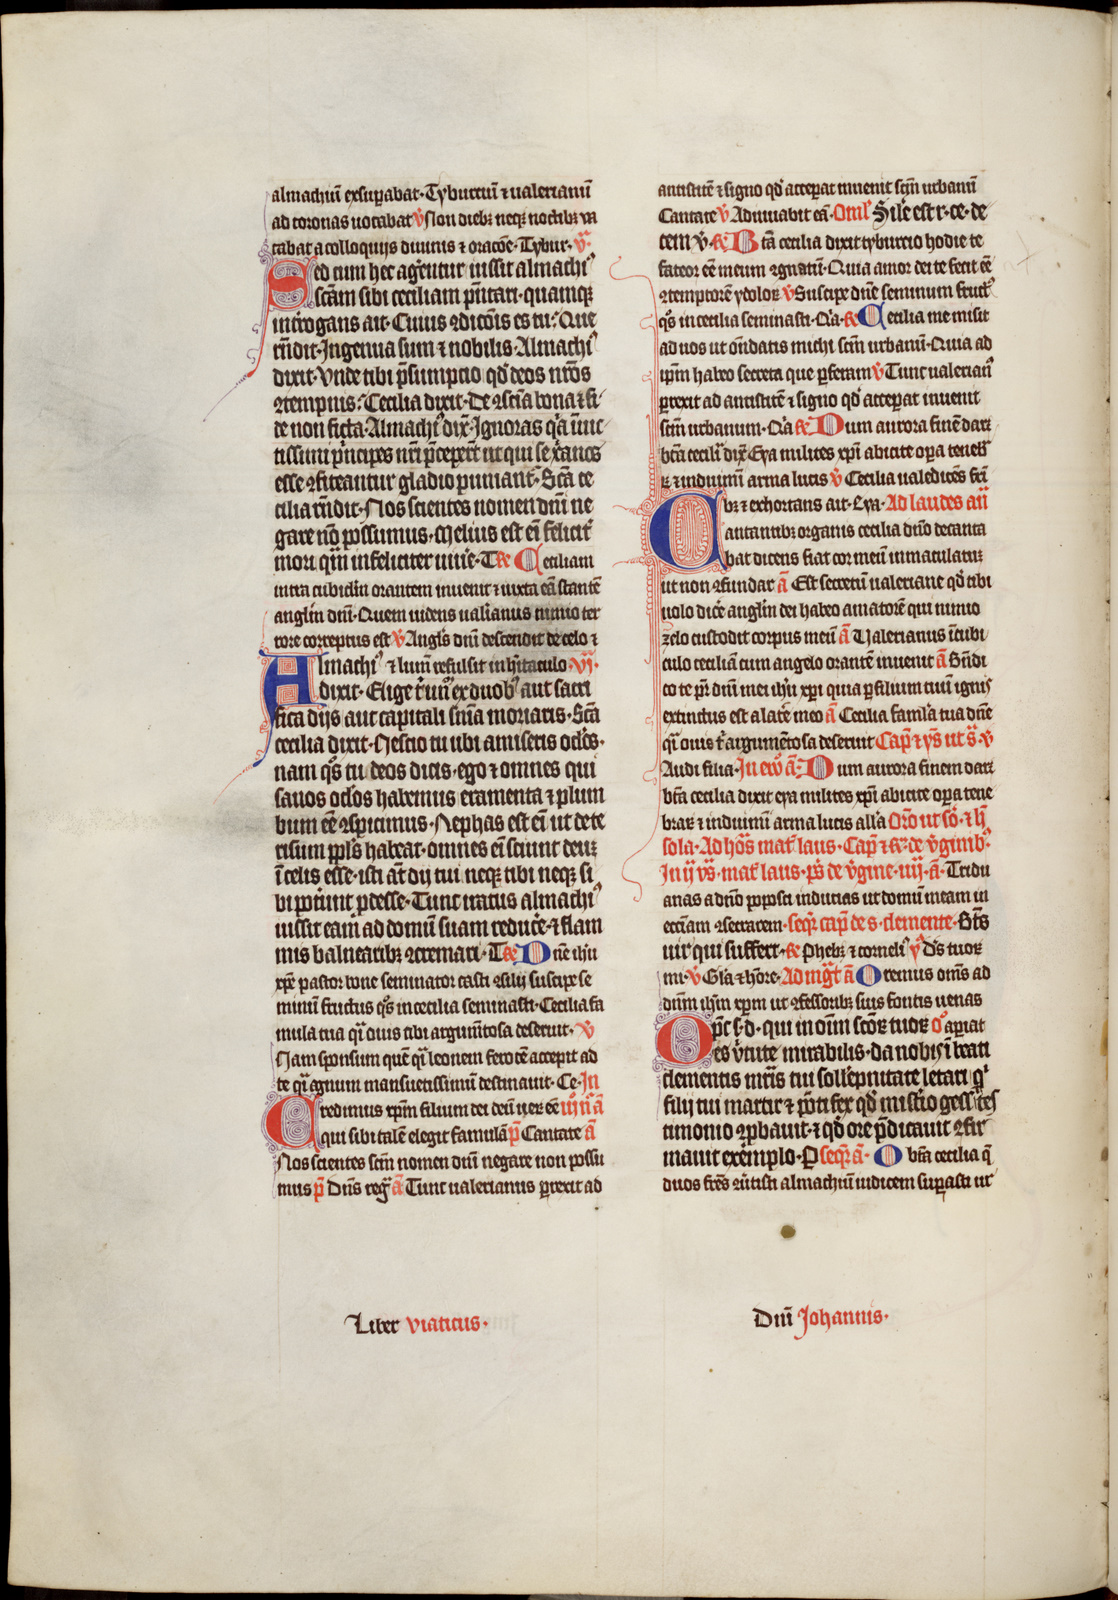 almachiū exsuꝑabat · Tyburciū ⁊ ualerianū
ad coronas uocabat v̄ Non dieb; neq; noctib; va
cabat a colloquijs diuinis ⁊ oracōe · Tybur · v̄
Sed cum hec ag̾entur iussit almachiꝰ
sc̄am sibi ceciliam p̄ntari · quamq;
int̾rogans ait · Cuius ꝯdicōis es tu · Que
rn̄dit · Ingenua sum ⁊ nobilis · Almachiꝰ
dixit · Vnde tibi p̄sumpcio qd̾ deos nr̄os
ꝯtempnis · Cecilia dixit · De ꝯscīa bona ⁊ fi
de non ficta · Almachiꝰ dix̄ · Ignoras qᷓ īuic
tissimi p̄ncipes nr̄i p̄ceper̄t ut qui se xᷓanos
esse ꝯfiteantur gladio puniant̾ · Sc̄a ce
cilia rn̄dit · Nos scientes nomen dn̄i ne
gare nō possumus · Melius est eī felicit̾
mori qᷓ infeliciter uiue̾ · T ℟ Ceciliam
intra cubicl̄m orantem inuenit ⁊ iuxta eā stantē
angl̄m dn̄i · Quem uidens ual̾ianus nimio ter
rore correptus est v̄ Angl̄s dn̄i descendit de celo ⁊
Almachiꝰ ⁊ lum̄ refulsit in hītaculo · vi ·
dixit · Elige t̾ unū ex duobꝰ aut sacri
fica dijs aut capitali sn̄ia moriaris · Sc̄a
cecilia dixit · Nescio tu ubi amiseris oc̄los ·
nam qᷓs tu deos dicis · ego ⁊ omnes qui
sanos oc̄los habemus eramenta ⁊ plum
bum eē ꝯspicimus · Nephas est eī ut dete
risum ppl̄s habeat · omnes eī sciunt deū
ī celis esse · isti aū dij tui neq; tibi neq; si
bi pot̾unt ꝓdesse · Tunc iratus almachiꝰ
iussit eam ad domū suam reduc̾e · ⁊ flam
mis balnearib; ꝯcremari · T ℟ Dn̄e ih̄u
xp̄e pastor bone seminator casti ꝯsilij suscipe se
minū fructus qᷓs in cecilia seminasti · Cecilia fa
mula tua qᷓi ouis tibi argum̄tosa deseruit · v̄
Nam sponsum quē qᷓi leonem ferocē accepit ad
te qᷓi agnum mansuetissimū destinauit · Ce · In
Credimus xp̄m filium dei deū uer̄ eē iij n̄ a͞
qui sibi talē elegit famulā p̄ Cantate a͞
Nos scientes sc̄m nomen dn̄i negare non possu
mus p̄ Dn̄s reg̾ a͞ Tunc ualerianus ꝑrexit ad
antistitē ⁊ signo qd̾ acceperat inuenit sc̄m urbanū
Cantate v̄ Adiuuabit eā · Oml̾ Sil̾e est r · ce · de
cem v̄ · ℟ Bt̄a cecilia dixit tyburcio hodie te
fateor eē meum ꝯgnatū · Quia amor dei te fecit eē
ꝯtemptorē ydoloꝝ v̄ Suscipe dn̄e seminum fruct̾
qᷓs in cecilia seminasti · Qᷓa · ℟ Cecilia me misit
ad uos ut ōndatis michi sc̄m urbanū · Quia ad
ip̄m habeo secreta que ꝑferam v̄ Tunc ualerianꝰ
ꝑrexit ad antistitē ⁊ signo qd̾ acceperat inuenit
sc̄m urbanum · Qᷓa ℟ Dum aurora finē daret
bt̄a cecilia dix̄ Eya milites xp̄i abicite opa teneb̾
ꝝ ⁊ induimī arma lucis v̄ Cecilia ualedicēs fr̄i
b; ⁊ exhortans ait · Eya · Ad laudes an̄
Cantantib; organis cecilia dn̄o decanta
bat dicens fiat cor meū inmaculatū
ut non ꝯfundar a͞ Est secretū ualeriane qd̾ tibi
uolo dic̾e angl̄m dei habeo amatorē qui nimio
zelo custodit corpus meū a͞ Valerianus ī cubi
culo ceciliā cum angelo orantē inuenit a͞ Bn̄di
co te pr̄ dn̄i mei ih̄u xp̄i quia ꝑ filium tuū ignis
extinctus est a lat̾e meo a͞ Cecilia faml̄a tua dn̄e
qᷓi ouis t̾ argumētosa deseruit Cap̄ ⁊ ẏs ut s̾ · v̄
Audi filia · In ew̄ a͞ · Dum aurora finem daret
bt̄a cecilia dixit eya milites xp̄i abicite opa tene
braꝝ ⁊ induimī arma lucis all̄a Or̄o ut sͦ · ⁊ h̾
sola · Ad hōs mat̾ laus · Cap̄ ⁊ ℟ · de v̾ginib; ·
In ij vs̾ · mat̾ laus · ps̄ de v̾gine · iiij · a͞ · Tridu
anas a dn̄o poposci inducias ut domū meam in
ecc̄iam ꝯsecrarem · seqr̾ cap̄ de s · clemente · Bt̄s
uir qui suffert · ℟ Pheb; ⁊ corneliꝰ v̄ Ds̄ tuoꝝ
mi · v̄ Gl̄a ⁊ hōre · Ad mgt̄ a͞ Oremus om̄s ad
dn̄m ih̄m xp̄m ut ꝯfessorib; suis fontis uenas
Op̄c s · d · qui in oīm sc̄oꝝ tuoꝝ oͦ aꝑiat
es v̾tute mirabilis · da nobis ī beati
clementis mr̄is tui sollēpnitate letari qᷓ
filij tui martir ⁊ pōtifex qd̾ mist̾io gessit tes
timonio ꝯpbauit · ⁊ qd̾ ore p̄dicauit ꝯfir
mauit exemplo · P seqr̾ a͞ · O bt̄a cecilia q̄
duos fr̄es ꝯu̾tisti almachiū iudicem suꝑasti ur
Liber viaticus ·
Dn̄i Johannis ·